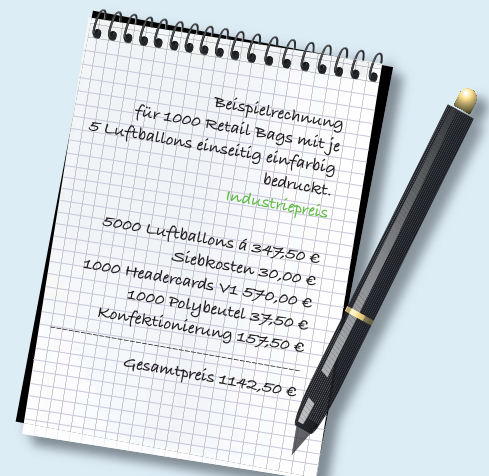 Beispielrechnung
für 1000 Retail Bags mit je
5 Luftballons einseitig einfarbig
bedruckt.
Industriepreis
5000 Luftballons á 347,50 €
Siebkosten 30,00 €
1000 Headercards V1 570,00 €
1000 Polybeutel 37,50 €
Konfektionierung 157,50 €
Gesamtpreis 1142,50 €